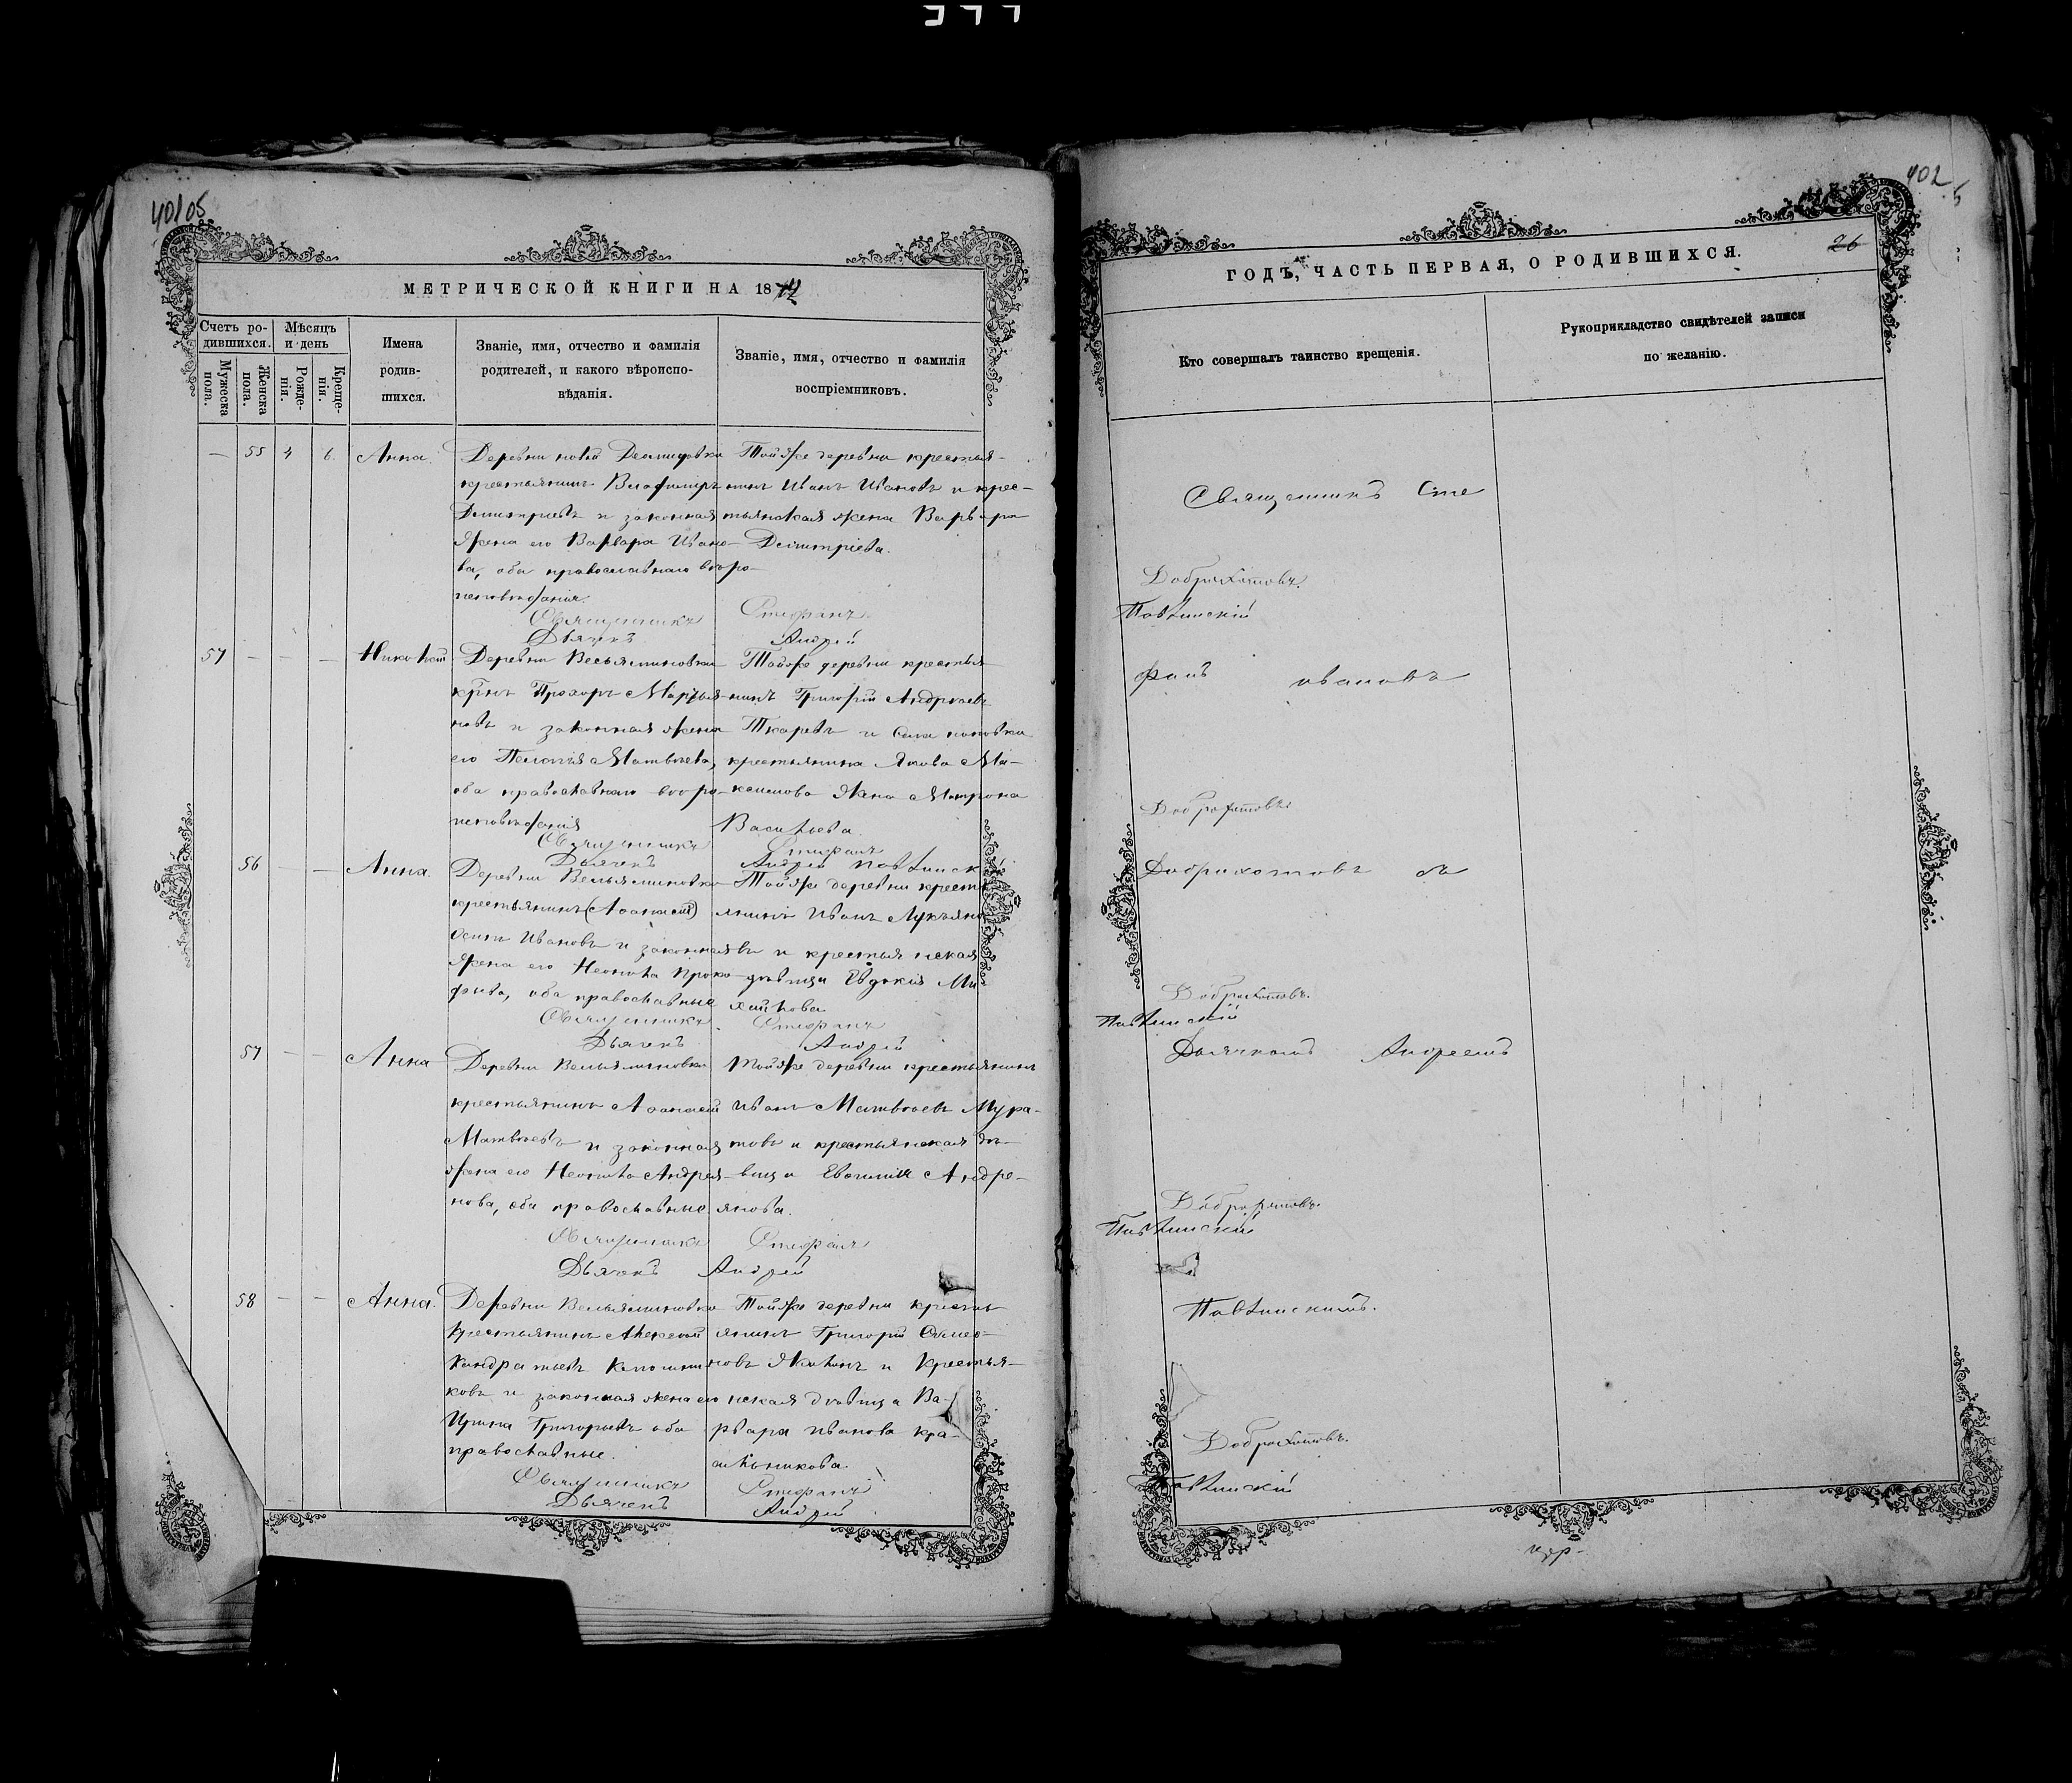 МЕТРИЧЕСКОЙ КНИГИ НА 1872
Счетъ ро-
дившихся.
Мѣсяцъ
и день
Мужеска
пола.
Женска
пола.
Рожде-
нія.
Креще-
нія.
Имена
родив-
шихся.
Званіе, имя, отчество и фамилія
родителей, и какого вѣроиспо-
вѣданія.
Званіе, имя, отчество и фамилія
воспріемниковъ.
— 55 4 6. Анна.
Деревни новой Демидовки
крестьянинъ Владимиръ
Дмитріевъ и законная
жена его Варвара Ивано-
ва, оба православнаго вѣро-
исповѣданія.
Тойже деревни крестья-
нинъ Иванъ Ивановъ и крес-
тьянская жена Варвара
Демитріева.
Священникъ Стефанъ
Дьячекъ Андрей
57 — — — Николай
Деревни Вельяминовки
кр-нъ Прохоръ Мартья-
новъ и законная жена
его Пелагія Матвѣева,
оба православнаго вѣро-
исповѣданія
Тойже деревни крестья-
нинъ Григорій Андреевъ
Токаревъ и Села
крестьянина Якова Ма-
ксимова жена Матрона
Васильева.
Священникъ Стефанъ
Дьячекъ Андрей Павлинск
56 — Анна.
Деревни Вельяминовки
крестьянинъ (Аѳанасій)
Осипъ Ивановъ и законная
жена его Неонила Проко-
фьева, оба православные
Тойже деревни кресть
янинъ Иванъ Лукьяно
въ и крестьянская
дѣвица Евдокія Ми
хайлова
Священникъ Стефанъ
Дьячекъ Андрей
57 — — Анна
Деревни Вельяминовки
крестьянинъ Аѳанасій
Матвѣевъ и законная
жена его Неонила Андрея-
нова, оба православные
Тойже деревни крестьянинъ
Иванъ Матвѣевъ Мура-
товъ и крестьянская дѣ-
вица Евѳимія Андре-
янова.
Священникъ Стефанъ
Дьячекъ Андрей
58 — — Анна.
Деревни Вельяминовки
крестьянинъ Алексѣй
Кандратьевъ
ковъ и законная жена его
Ирина Григорьевъ оба
православные.
Тойже деревни кресть
янинъ Григорій Семе-
новъ Якилинъ и крестья-
нская дѣвица Ва-
рвара Иванова Кра-
сильникова.
Священникъ Стефанъ
Дьячекъ Андрей
402
26
ГОДЪ, ЧАСТЬ ПЕРВАЯ, О РОДИВШИХСЯ.
Кто совершалъ таинство крещенія.
Рукоприкладство свидѣтелей записи
по желанію.
Священникъ Сте
Доброхотовъ.
Павлинскій
фанъ Ивановъ
Доброхотовъ.
Доброхотовъ съ
Доброхотовъ.
Павлинскій
Дьячкомъ Андреемъ
Доброхотовъ.
Павлинскій
Павлинскимъ.
Доброхотовъ.
Павлинскій